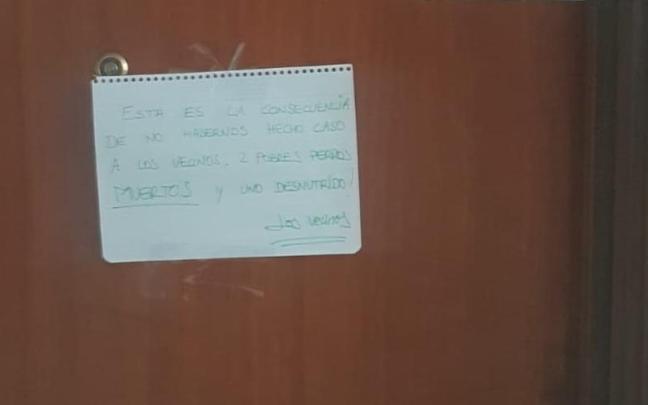 ESTA ES LA CONSECUENCIA
DE NO HABERNOS HECHO CASO
A LOS VECINOS. 2 POBRES PERROS
MUERTOS Y UNO DESNUTRIDO!
Los vecinos